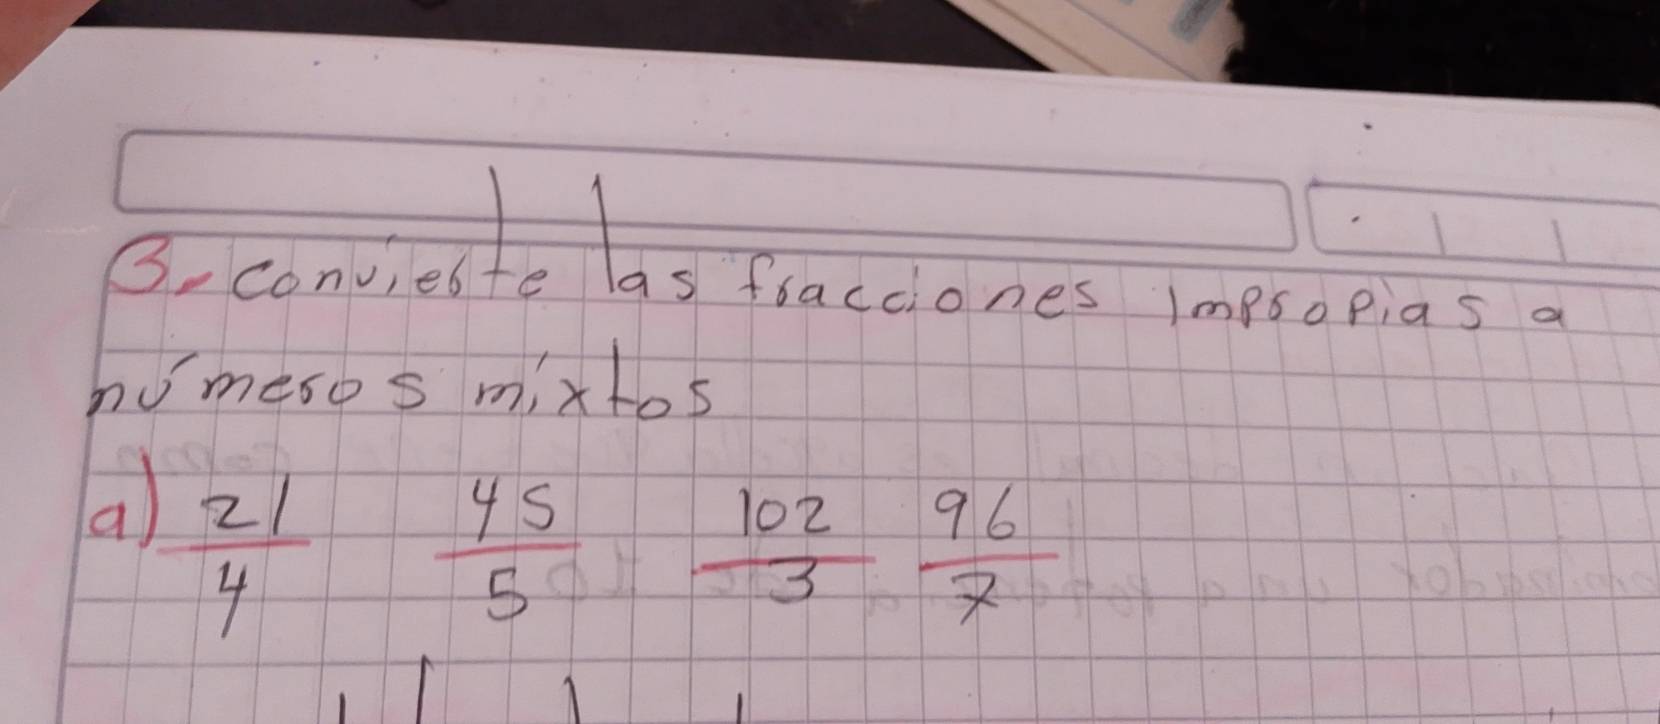 3. convierte las fracciones impropias a
números mixtos
a) 21/4 45/5 102/3 96/7